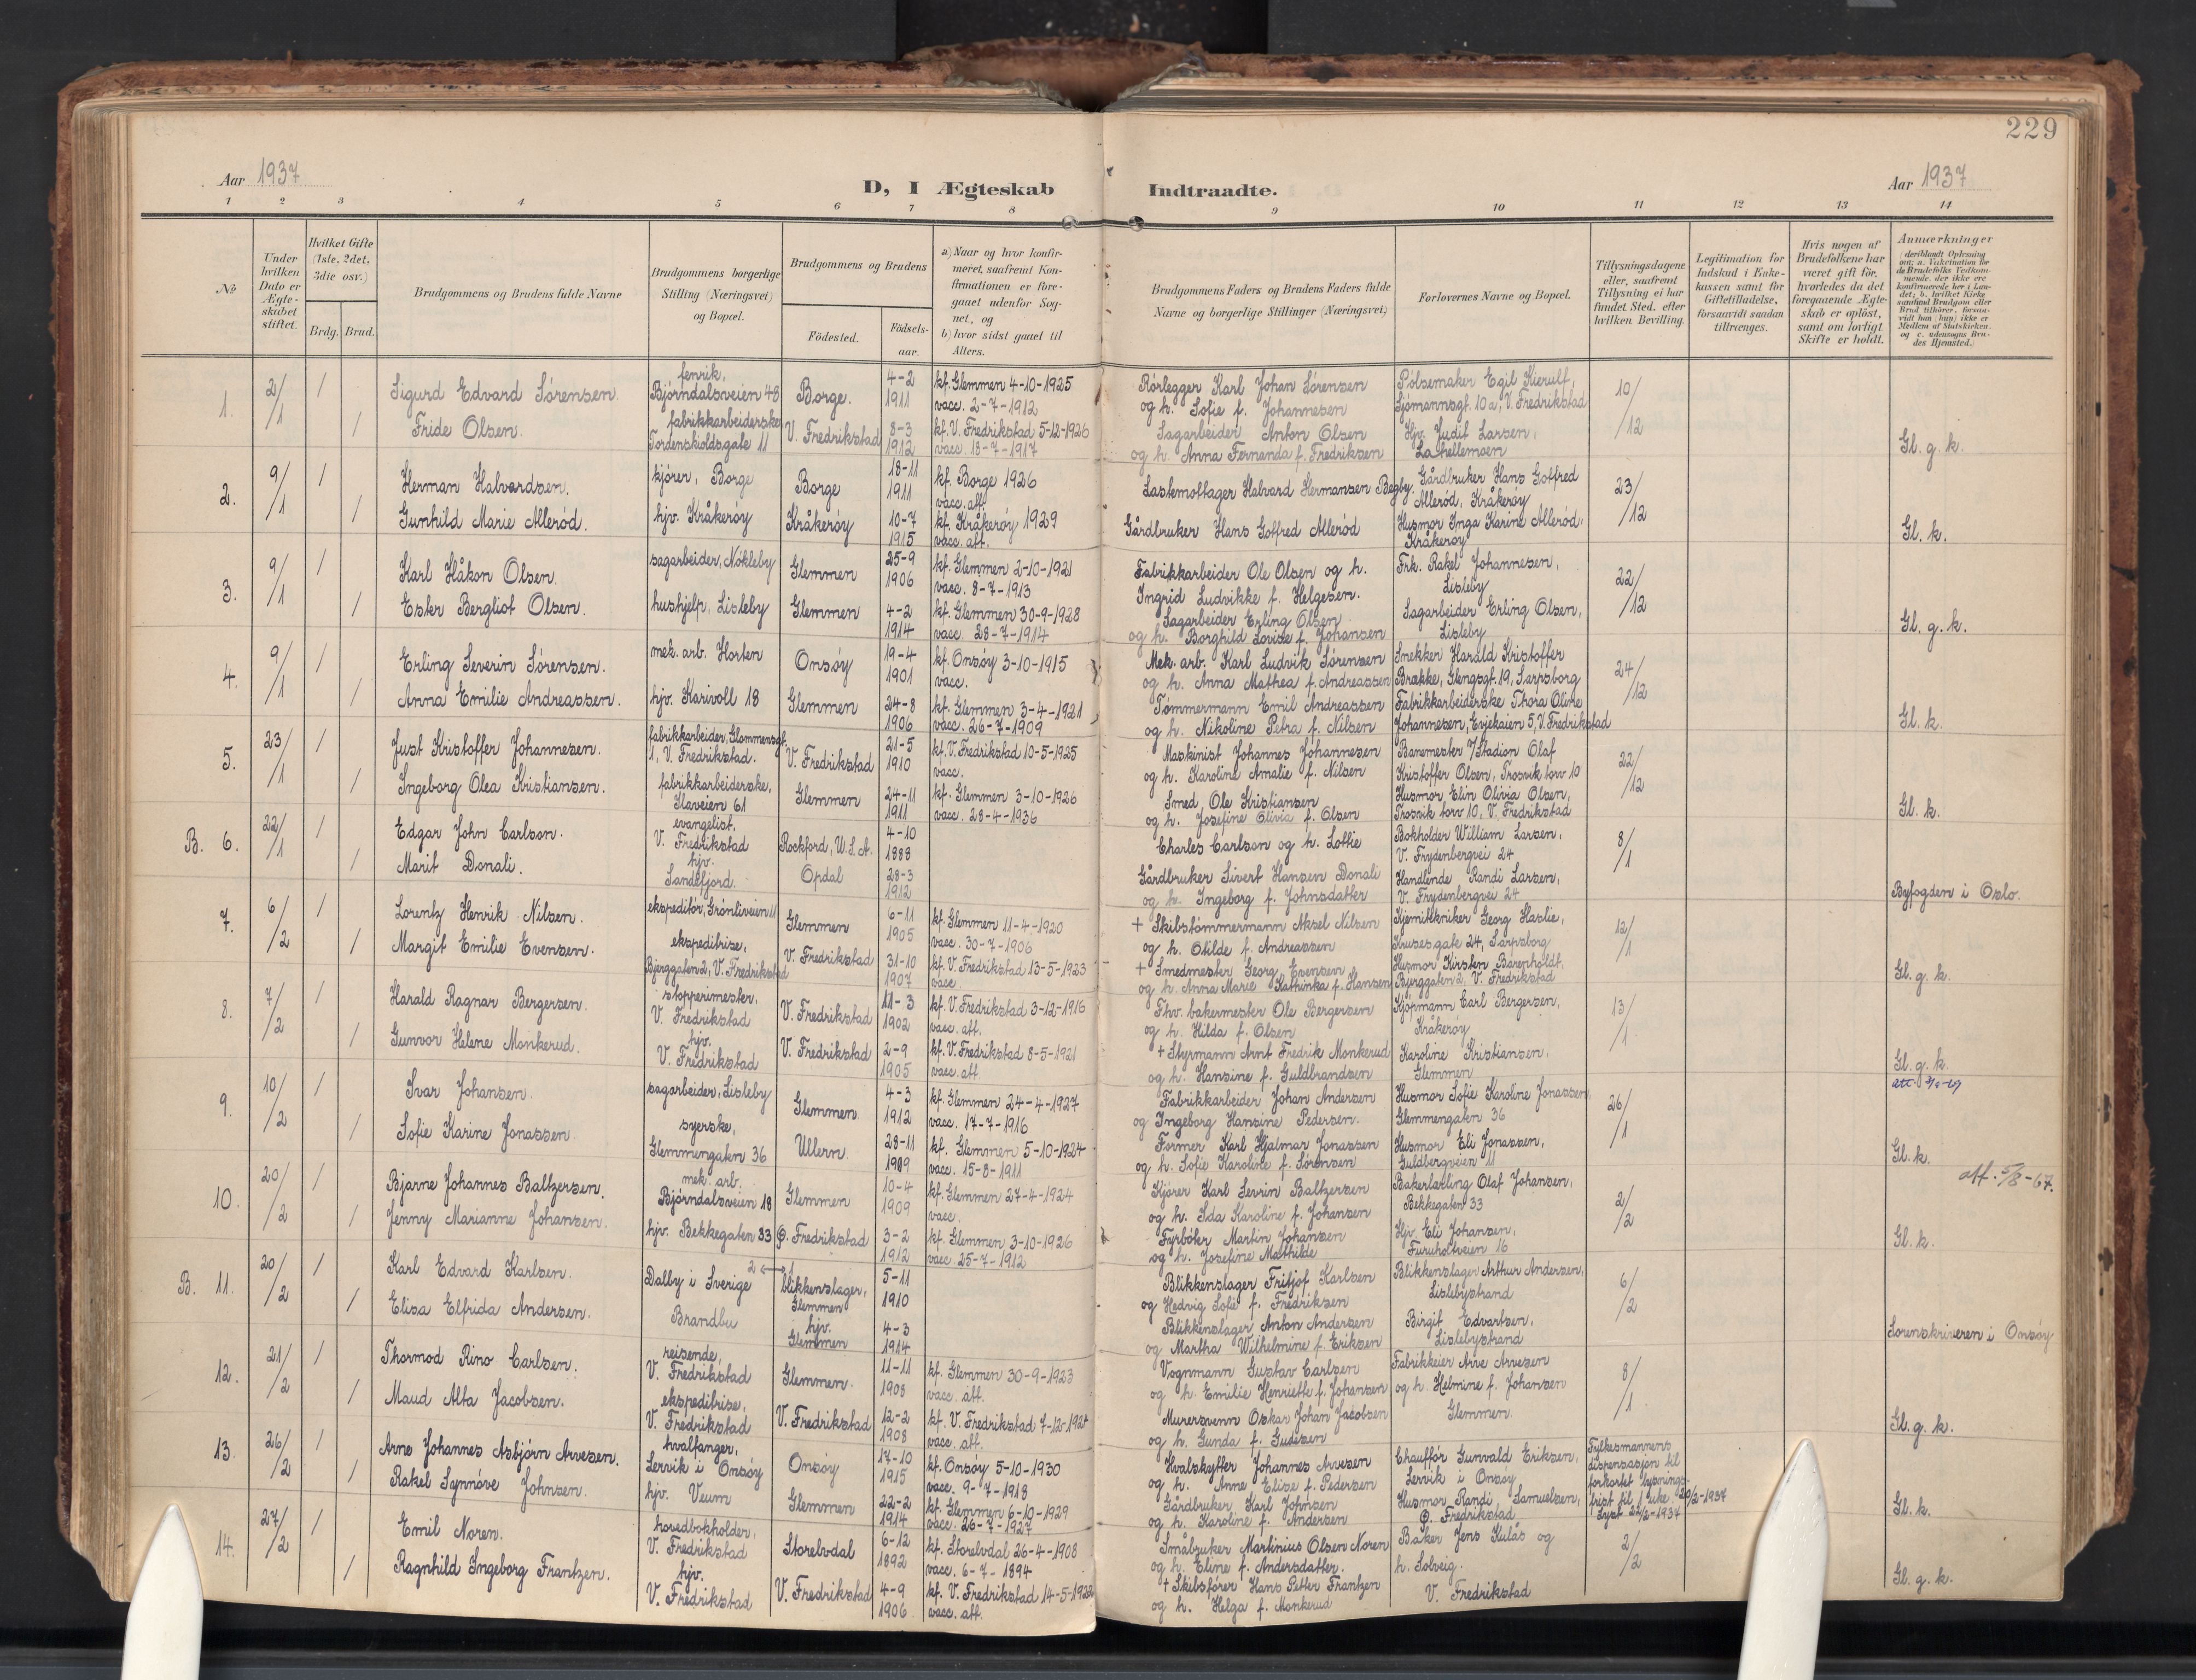 229
Aar 1937
D, I Ægteskab Indtraadte.
Aar 1937
1 2 3 4 5 6 7 8 9 10 11 12 13 14
No
Under hvilken Dato er Ægteskabet stiftet.
Hvilket Gifte (1ste, 2det, 3die osv.)
Brdg. Brud.
Brudgommens og Brudens fulde Navne
Brudgommens borgerlige Stilling (Næringsvei) og Bopæl.
Brudgommens og Brudens
Födested.
Födsels-aar.
a) Naar og hvor konfirmeret, saafremt Konfirmationen er foregaaet udenfor Sognet, og
b) hvor sidst gaaet til Alters.
Brudgommens Faders og Brudens Faders fulde Navne og borgerlige Stillinger (Næringsvei)
Forlovernes Navne og Bopæl.
Tillysningsdagene eller, saafremt Tillysning ei har fundet Sted, efter hvilken Bevilling.
Legitimation for Indskud i Enkekassen samt for Giftetilladelse, forsaavidt saadan tiltrænges.
Hvis nogen af Brudefolkene har været gift för, hvorledes da det foregaaende Ægteskab er oplöst, samt om lovligt Skifte er holdt.
Anmærkninger (deriblandt Oplysning om: a. Vakcination for de Brudefolks Vedkommende, der ikke ere konfirmerede her i Landet; b. hvilket Kirkesamfund Brudgom eller Brud tilhörer, forsaavidt han (hun) ikke er Medlem af Statskirken, og c. udensogns Brudes Hjemsted.)
1. 2/1 / Sigurd Edvard Sørensen. fenrik, Bjørndalsveien 48 Borge. 4-2 1911 kf. Glemmen 4-10-1925 vacc. 2-7-1912 Rørlegger Karl Johan Sørensen og h. Sofie f. Johannesen Pølsemaker Egil Kierulf, Sjømannsgt. 10a, V. Fredrikstad 10/12
/ Fride Olsen. fabrikkarbeiderske Tordenskioldsgate 11 V. Fredrikstad 8-3 1912 kf. V. Fredrikstad 5-12-1926 vacc. 18-7-1917 Sagarbeider Anton Olsen og h. Anna Fernanda f. Fredriksen Hjv. Judit Larsen, Lahellemoen Gl. g. k.
2. 9/1 / Herman Halvardsen. kjører, Borge Borge 18-11 1911 kf. Borge 1926 vacc. att. Lastemottager Halvard Hermansen Begby. Gårdbruker Hans Gotfred Allerød, Kråkerøy 23/12
/ Gunhild Marie Allerød. hjv. Kråkerøy Kråkerøy 10-7 1915 kf. Kråkerøy 1929 vacc. att. Gårdbruker Hans Gotfred Allerød Husmor Inga Karine Allerød, Kråkerøy Gl. k.
3. 9/1 / Karl Håkon Olsen. sagarbeider, Nøkleby Glemmen 25-9 1906 kf. Glemmen 2-10-1921 vacc. 8-7-1913 Fabrikkarbeider Ole Olsen og h. Ingrid Ludvikke f. Helgesen. Frk. Rakel Johannesen, Lisleby 22/12
/ Ester Bergliot Olsen. hushjelp, Lisleby Glemmen 4-2 1914 kf. Glemmen 30-9-1928 vacc. 28-7-1914 Sagarbeider Erling Olsen og h. Borghild Lovise f. Johansen Sagarbeider Erling Olsen, Lisleby Gl. g. k.
4. 9/1 / Erling Severin Sørensen. mek. arb. Horten Onsøy 19-4 1901 kf. Onsøy 3-10-1915 vacc. Mek. arb. Karl Ludvik Sørensen og h. Anna Mathea f. Andreassen Snekker Harald Kristoffer Brække, Glengsgt. 19, Sarpsborg 24/12
/ Anna Emilie Andreassen. hjv. Karivoll 18 Glemmen 24-8 1906 kf. Glemmen 3-4-1921 vacc. 26-7-1909 Tømmermann Emil Andreassen og h. Nikoline Petra f. Nilsen Fabrikkarbeiderske Thora Oline Johannesen, Evjekaien 5, V. Fredrikstad Gl. k.
5. 23/1 / Just Kristoffer Johannesen. fabrikkarbeider, Glommensgt. 1, V. Fredrikstad. V. Fredrikstad 21-5 1910 kf. V. Fredrikstad 10-5-1925 vacc. Maskinist Johannes Johannesen og h. Karoline Amalie f. Nilsen Banemester v/Stadion Olaf Kristoffer Olsen, Trosvik torv 10 22/12
/ Ingeborg Olea Kristiansen. fabrikkarbeiderske, Ilaveien 61 Glemmen 24-11 1911 kf. Glemmen 3-10-1926 vacc. 28-4-1936 Smed Ole Kristiansen og h. Josefine Olivia f. Olsen Husmor Elin Olivia Olsen, Trosvik torv 10, V. Fredrikstad Gl. k.
B. 6. 22/1 / Edgar John Carlson. evangelist, V. Fredrikstad Rockford, U.S.A. 4-10 1888 Charles Carlson og h. Lottie Bokholder William Larsen, V. Frydenbergvei 24 8/1
/ Marit Donali. hjv. Sandefjord. Opdal 28-3 1912 Gårdbruker Sivert Hansen Donali og h. Ingeborg f. Johnsdatter Handlende Randi Larsen, V. Frydenbergvei 24 Byfogden i Oslo.
7. 6/2 / Lorentz Henrik Nilsen. ekspeditør, Grønliveien 11 Glemmen 6-11 1905 kf. Glemmen 11-4-1920 vacc. 30-7-1906 + Skibstømmermann Aksel Nilsen og h. Otilde f. Andreassen Kjemitekniker Georg Haslie, Krusesgate 24, Sarpsborg 12/1
/ Margit Emilie Evensen. ekspeditrise, Bjerggaten 2, V. Fredrikstad V. Fredrikstad 31-10 1907 kf. V. Fredrikstad 13-5-1923 vacc. + Smedmester Georg Evensen og h. Anna Marie Kathinka f. Hansen Husmor Kirsten Barenholdt, Bjerggaten 2, V. Fredrikstad Gl. g. k.
8. 7/2 / Harald Ragnar Bergersen. stopperimester, V. Fredrikstad V. Fredrikstad 11-3 1902 kf. V. Fredrikstad 3-12-1916 vacc. att. Fhv. bakermester Ole Bergersen og h. Hilda f. Olsen Kjøpmann Carl Bergersen, Kråkerøy 13/1
/ Gunvor Helene Monkerud. hjv. V. Fredrikstad V. Fredrikstad 2-9 1905 kf. V. Fredrikstad 8-5-1921 vacc. att + Styrmann Arnt Fredrik Monkerud og h. Hansine f. Guldbrandsen Karoline Kristiansen. Glemmen Gl. g. k.
9. 10/2 / Ivar Johansen. sagarbeider, Lisleby Glemmen 4-3 1912 kf. Glemmen 24-4-1927 vacc. 17-7-1916 Fabrikkarbeider Johan Andersen og Ingeborg Hansine Pedersen. Husmor Sofie Karoline Jonassen, Glemmengaten 36 26/1
/ Sofie Karine Jonassen. syerske, Glemmengaten 36 Ullern 28-11 1909 kf. Glemmen 5-10-1924 vacc. 15-8-1911 Former Karl Hjalmar Jonassen og h. Sofie Karoline f. Sørensen Husmor Eli Jonassen, Guldbergveien 11 Gl. k.
att. 5/8-67.
10. 20/2 / Bjarne Johannes Baltzersen. mek. arb. Bjørndalsveien 18 Glemmen 10-4 1909 kf. Glemmen 27-4-1924 vacc. Kjører Karl Sevrin Baltzersen og h. Ida Karoline f. Johansen Bakerlærling Olaf Johansen, Bekkegaten 33 2/2
/ Jenny Marianne Johansen. hjv. Bekkegaten 33 Ø. Fredrikstad 3-2 1912 kf. Glemmen 3-10-1926 vacc. 25-7-1912 Fyrbøter Martin Johansen og h. Josefine Mathilde Hjv. Eli Johansen, Furuholtveien 16 Gl. k.
B. 11. 20/2 / Karl Edvard Karlsen. Dalby i Sverige 2 ↔ 1 blikkenslager, Glemmen 5-11 1910 Blikkenslager Fritjof Karlsen og Hedvig Sofie f. Fredriksen Blikkenslager Arthur Andersen, Lislebystrand 6/2
/ Elisa Elfrida Andersen. Brandbu hjv. Glemmen 4-3 1914 Blikkenslager Anton Andersen og Martha Wilhelmine f. Eriksen Birgit Edvartsen, Lislebystrand Sorenskriveren i Onsøy
12. 21/2 / Thormod Rino Carlsen. reisende, V. Fredrikstad Glemmen. 11-11 1908 kf. Glemmen 30-9-1923 vacc. att. Vognmann Gustav Carlsen og h. Emilie Henriette f. Johansen Fabrikkeier Arve Arvesen og h. Helmine f. Johansen Glemmen. 8/1
/ Maud Alta Jacobsen. ekspeditrise, V. Fredrikstad V. Fredrikstad 12-2 1908 kf. V. Fredrikstad 7-12-1924 vacc. att. Murersvenn Oskar Johan Jacobsen og h. Gunda f. Gudesen Gl. g. k.
13. 26/2 / Arne Johannes Asbjørn Arvesen. hvalfanger, Lervik i Onsøy Onsøy 17-10 1915 kf. Onsøy 5-10-1930 vacc. 9-7-1918 Hvalskytter Johannes Arvesen og h. Anne Elise f. Pedersen Chauffør Gunvald Eriksen, Lervik i Onsøy Fylkesmannens dispensasjon til forkortet lysningsfrist til 1 uke. 20/2-1937 Lyst 22/2-1937
/ Rakel Synnøve Johnsen. hjv. Veum Glemmen 22-2 1914 kf. Glemmen 6-10-1929 vacc. 26-7-1927 Gårdbruker Karl Johnsen og h. Karoline f. Andersen Husmor Randi Samuelsen, Ø. Fredrikstad Gl. k.
14. 27/2 / Emil Noren. hovedbokholder, V. Fredrikstad Storelvdal 6-12 1892 kf. Storelvdal 26-4-1908 vacc. 6-7-1894 Småbruker Martinius Olsen Noren og h. Eline f. Andersdatter. Baker Jens Kulås og h. Solveig. V. Fredrikstad 2/2
/ Ragnhild Ingeborg Frantzen. hjv. V. Fredrikstad V. Fredrikstad 4-9 1906 kf. V. Fredrikstad 14-5-1922 vacc. att. + Skibsfører Hans Petter Frantzen og h. Helga f. Monkerud Gl. g. k.